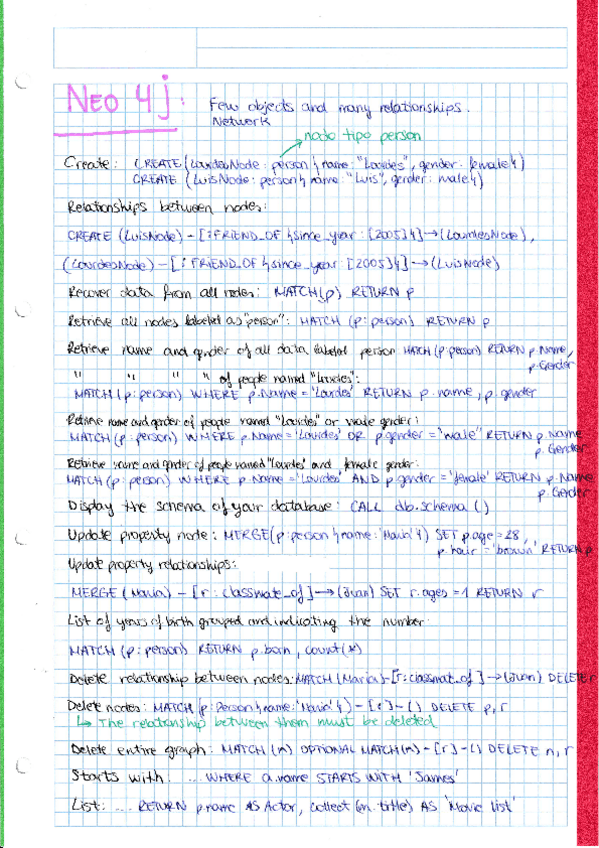 NEO 4j: Few objects and many relationships.
Network
nodo tipo person
Create: CREATE (LourdesNode: person { name: "Lourdes", gender: female })
CREATE (LuisNode: person { name: "Luis", gender: male })
Relationships between nodes:
CREATE (LuisNode) - [:FRIEND_OF {since_year: [2005]}] → (LourdesNode),
(LourdesNode) - [: FRIEND_OF {since_year: [2005]}] → (LuisNode)
Recover data from all nodes: MATCH(p) RETURN p
Retrieve all nodes labeled as "person": MATCH (p: person) RETURN p
Retrieve name and gender of all data labeled person MATCH (p:person) RETURN p.Name,
p.Gender
" " " " of people named "Lourdes":
MATCH (p: person) WHERE p.Name = 'Lourdes' RETURN p.name, p.gender
Retrieve name and gender of people named "Lourdes" or male gender:
MATCH (p: person) WHERE p.Name = 'Lourdes' OR p.gender = "male" RETURN p.Name
p.Gender
Retrieve name and gender of people named "Lourdes" and female gender:
MATCH (p: person) WHERE p.Name = 'Lourdes' AND p.gender = 'female' RETURN p.Name
p.Gender
Display the schema of your database: CALL db.schema ()
Update property node: MERGE(p:person {name: 'Maria'}) SET p.age = 28,
p.hair = 'brown' RETURN p
Updat property relationships:
MERGE (Maria) - [r: classmate_of] → (Juan) SET r.ages = 1 RETURN r
List of years of birth grouped and indicating the number:
MATCH (p: person) RETURN p.born, count(*)
Delete relationship between nodes: MATCH (Maria)-[r:classmat_of] → (Juan) DELETE r
Delete nodes: MATCH (p: Person {name: 'Maria'}) - [r] - () DELETE p, r
↳ The relationship between them must be deleted
Delete entire graph: MATCH (n) OPTIONAL MATCH(n) - [r] - () DELETE n, r
Starts with: ... WHERE a.name STARTS WITH 'James'
List: .... RETURN p.name AS Actor, collect (m.title) AS 'Movie list'